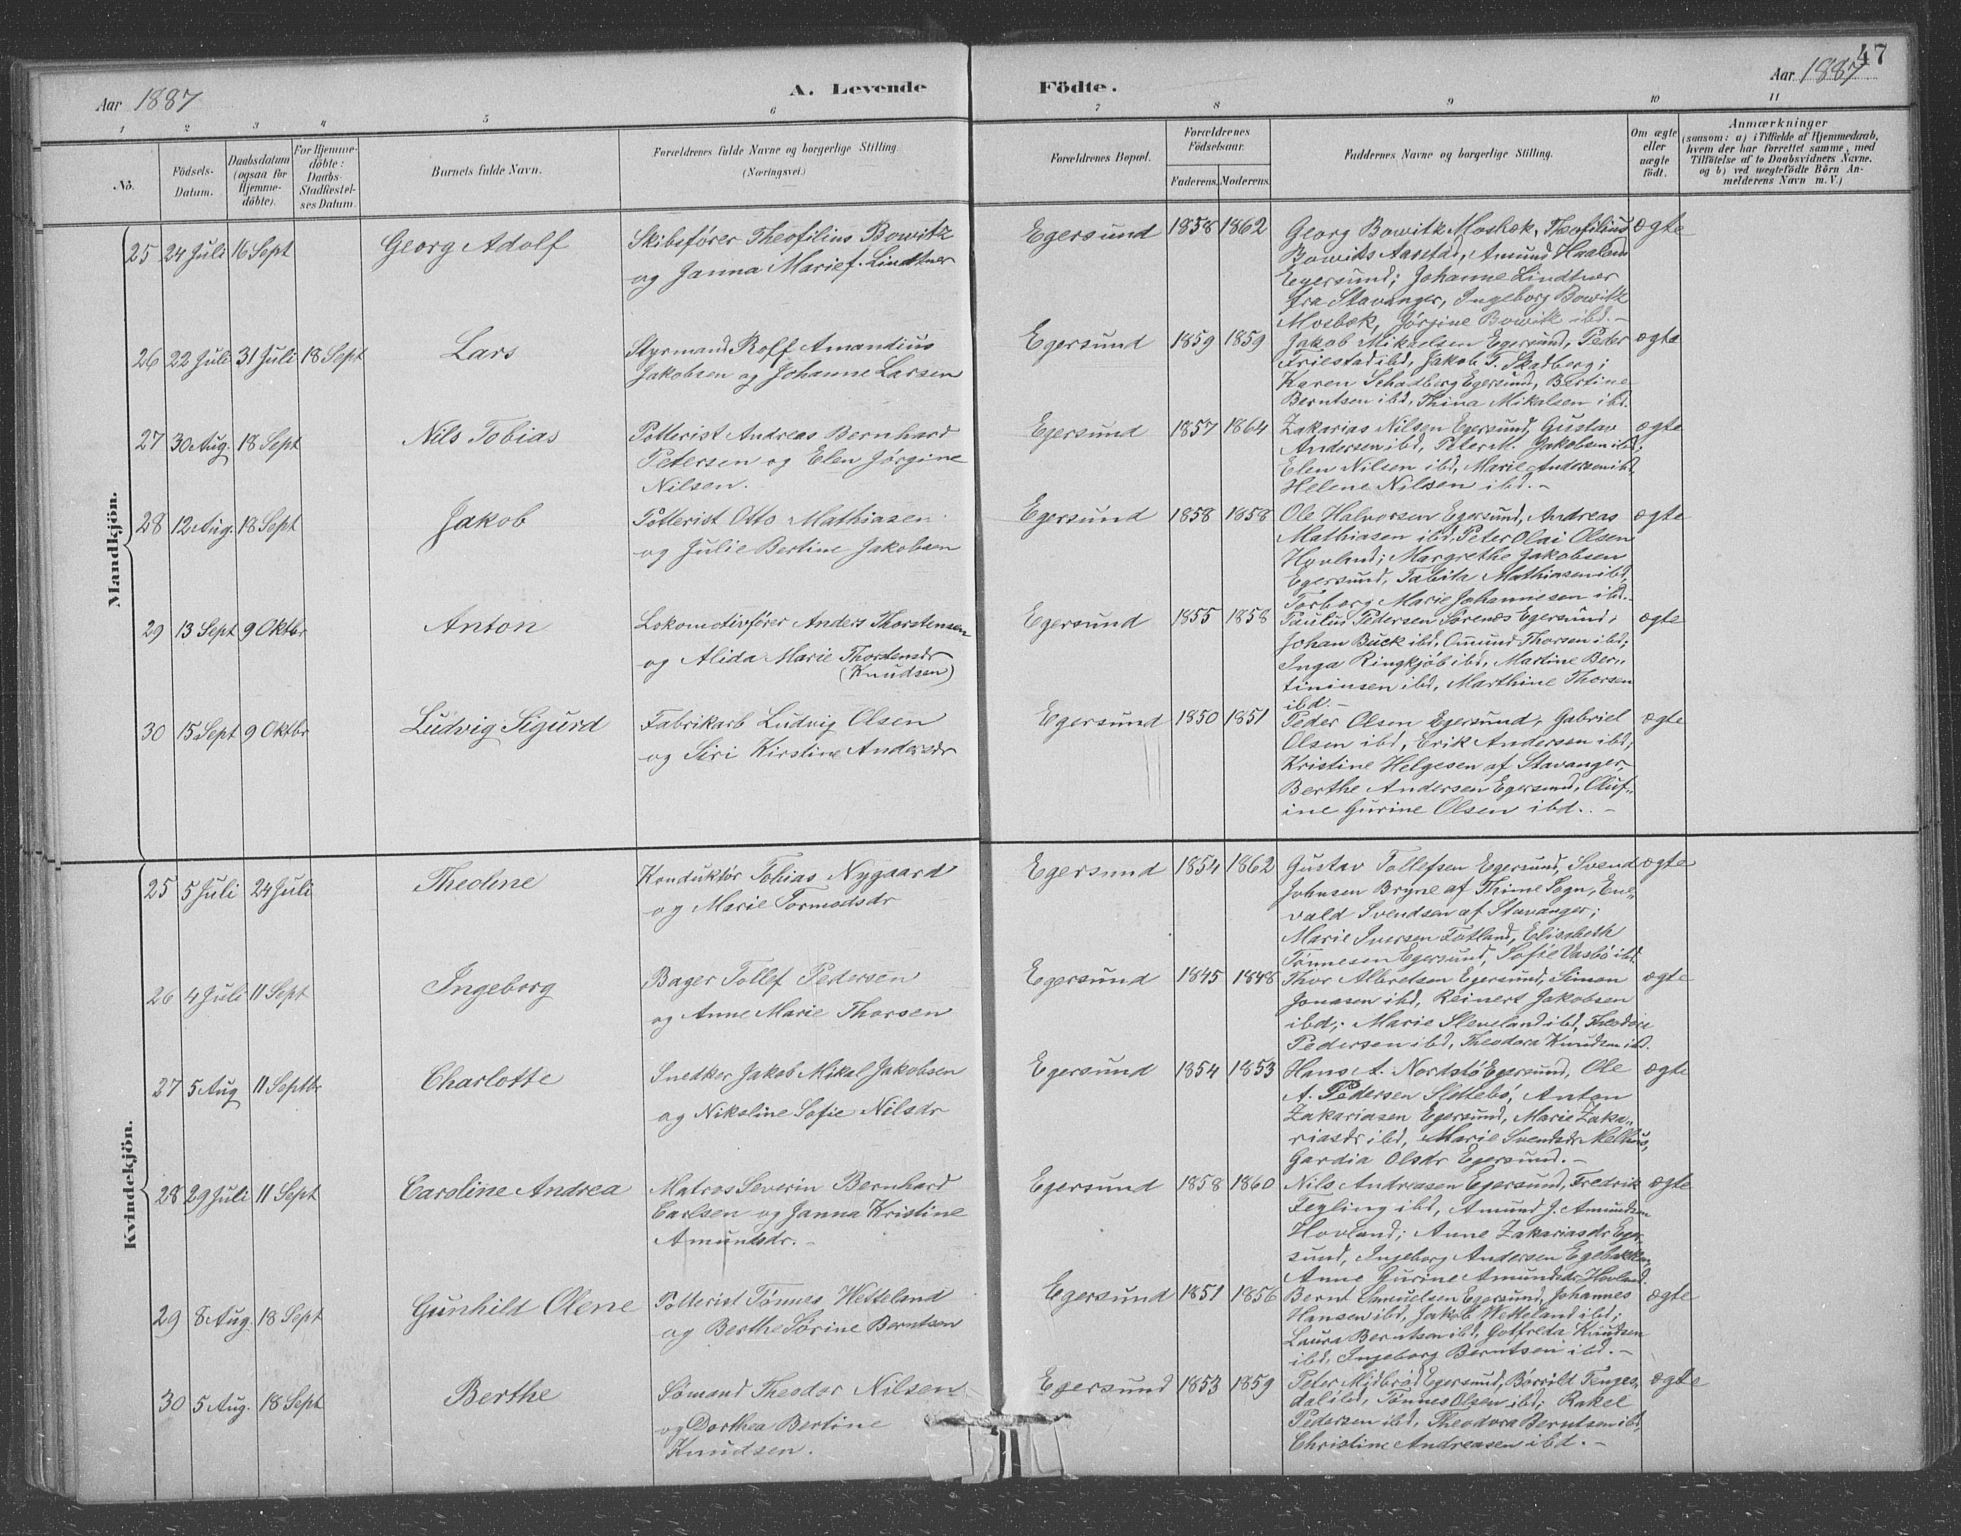 47
Aar 1887
A. Levende Födte.
Aar 1887
1 2 3 4 5 6 7 8 9 10 11
No.
Födsels-Datum.
Daabsdatum (ogsaa for Hjemmedöbte).
For Hjemmedöbte: Daabs-Stadfæstelses Datum.
Barnets fulde Navn.
Forældrenes fulde Navne og borgerlige Stilling. (Næringsvei.)
Forældrenes Bopæl.
Forældrenes Födselsaar.
Faderens. Moderens.
Faddernes Navne og borgerlige Stilling.
Om ægte eller uægte födt.
Anmærkninger
(saasom: a) i Tilfælde af Hjemmedaab, hvem der har forrettet samme, med Tilföielse af to Daabsvidners Navne, og b) ved uægtefödte Börn Anmelderens Navn m. V.)
Mandkjön.
25 24 Juli 16 Sept Georg Adolf
Skibsfører Theofilius Bowitz
og Janna Marie f. Lindtner
Egersund 1858 1862
Georg Bowitk Mosbæk, Theofilius
Bowids Aarstad, Amund Haaland
Egersund; Johanne Lindtner
fra Stavanger, Ingeborg Bowitk
Mosbæk, Jørgine Bowitk ibd. –
ægte
26 22 Juli 31 Juli 18 Sept Lars
Styrmand Rolf Amandius
Jakobsen og Johanne Larsen
Egersund 1859 1859
Jakob Mikaelsen Egersund, Peder
Friestad ibd, Jakob T. Skadberg;
Karen Schadberg Egersund, Bertine
Berntsen ibd, Thina Mikalsen ibd.
ægte
27 30 Aug. 18 Sept Nils Tobias
Potterist Andreas Bernhard
Petersen og Elen Jørgine
Nilsen.
Egersund 1857 1864
Zakarias Nilsen Egersund, Gustav
Andersen ibd, Peter M. Jakobsen ibd;
Elen Nilsen ibd, Marie Andersen ibd,
Helene Nilsen ibd. –
ægte
28 12 Aug. 18 Sept Jakob
Potterist Otto Mathiasen
og Julie Bertine Jakobsen
Egersund 1858 1858
Ole Halvorsen Egersund, Andreas
Mathiasen ibd, Peter Olai Olsen
Hovland; Margrethe Jakobsen
Egersund, Tabita Mathiasen ibd,
Torborg Marie Johannesen ibd. –
ægte
29 13 Sept 9 Oktbr Anton
Lokomotivfører Anders Thorstensen
og Alida Marie Thordensdr
(Knudsen)
Egersund 1855 1858
Paulus Pedersen Sørenes Egersund,
Johan Buck ibd, Omund Thorsen ibd;
Inga Ringkjøb ibd, Martine Ber-
tininsen ibd, Marthine Thorsen
ibd. –
ægte
30 15 Sept 9 Oktbr Ludvig Sigurd
Fabrikarb Ludvig Olsen
og Siri Kirstine Andersdr
Egersund 1850 1851
Peder Olsen Egersund, Gabriel
Olsen ibd, Erik Andersen ibd;
Kristine Helgesen af Stavanger,
Berthe Andersen Egersund, Oluf-
ine Gurine Olsen ibd. –
ægte
Kvindekjön.
25 5 Juli 24 Juli Theoline
Konduktør Tobias Nygaard
og Marie Tormodsdr
Egersund 1854 1862
Gustav Tollefsen Egersund, Svend
Johnsen Bryne af Thime Sogn, Ene-
vald Svendsen af Stavanger;
Marie Iversen Tøtland, Elisabeth
Tønnesen Egersund, Sofie Vasbø ibd.
ægte
26 4 Juli 11 Sept Ingeborg
Bager Tollef Pedersen
og Anne Marie Thorsen
Egersund 1845 1848
Thor Albretsen Egersund, Simon
Jonasen ibd, Reinert Jakobsen
ibd; Marie Sleveland ibd, Theodore
Pedersen ibd, Theodora Knudsen ibd.
ægte
27 5 Aug 11 Septbr Charlotte
Snedker Jakob Mikal Jakobsen
og Nikoline Sofie Nilsdr
Egersund 1854 1853
Hans A. Nordstø Egersund, Ole
A. Pedersen Slettebø, Anton
Zakariasen Egersund, Marie Zaka-
riasdr ibd, Marie Svendsdr Melhus,
Gardia Olsdr Egersund. –
ægte
28 29 Juli 11 Sept Caroline Andrea
Matros Severin Bernhard
Carlsen og Janna Kristine
Amundsdr. –
Egersund 1858 1860
Nils Andreasen Egersund, Fredrik
Feyling ibd, Amund J. Amundsen
Hovland; Anne Zakariasdr Eger-
sund, Ingeborg Andersen Egebakken,
Anne Gurine Amundsdr Hovland.
ægte
29 8 Aug. 18 Sept Gunhild Olene
Potterist Tønnes Wetteland
og Berthe Sørine Berntsen
Egersund 1851 1856
Bernt Samuelsen Egersund, Johannes
Hansen ibd, Jakob Wetteland ibd;
Laura Berntsen ibd, Gotfreda Knudsen
ibd, Ingeborg Berntsen ibd. –
ægte
30 5 Aug. 18 Sept Berthe
Sømand Theodor Nilsen
og Dorthea Bertine
Knudsen.
Egersund 1853 1859
Peter Midbrød Egersund, Børrild Tenges-
dal ibd, Tønnes Olsen ibd; Rakel
Pedersen ibd, Theodora Berntsen ibd,
Christine Andreasen ibd. –
ægte